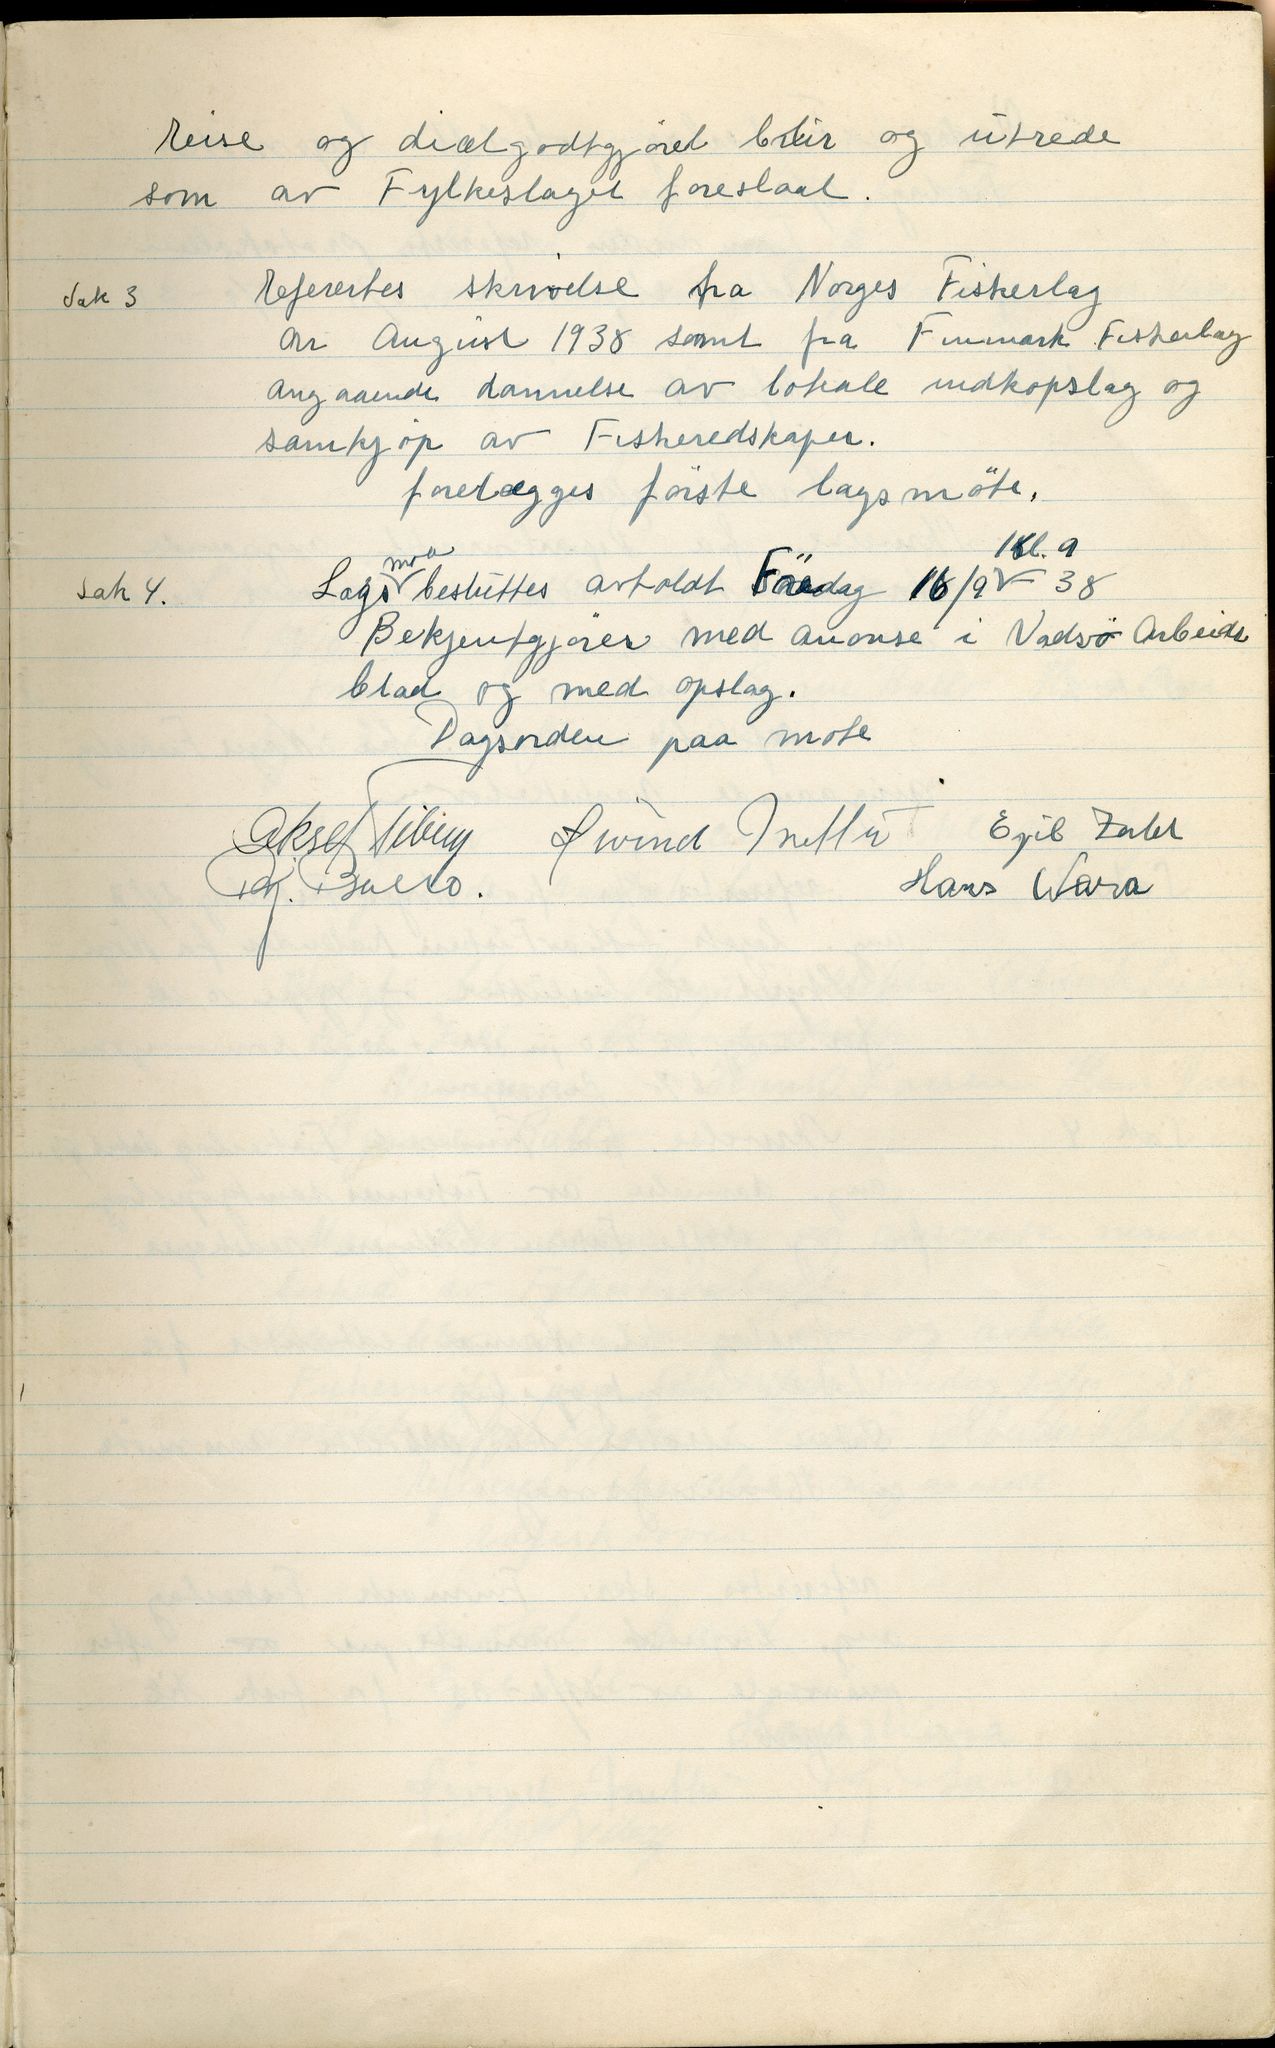 Reise og diætgodtgjörel blir og utrede
som av Fylkeslaget foreslaat.
Sak 3 Referertes skrivelse fra Norges Fiskerlag
av August 1938 samt fra Finmark Fiskerlag
angaaende dannelse av lokale indkopslag og
samkjöp av Fiskeredskaper.
forelægges förste lagsmöte.
kl. 9
Sak 4. Lags besluttes avholdt 16/9 38
Bekjentgjöres med anonse i Vadsö Arbeide
blad og med opslag.
Dagsorden paa mote
Aksel Øivind Egil
Hans Wara